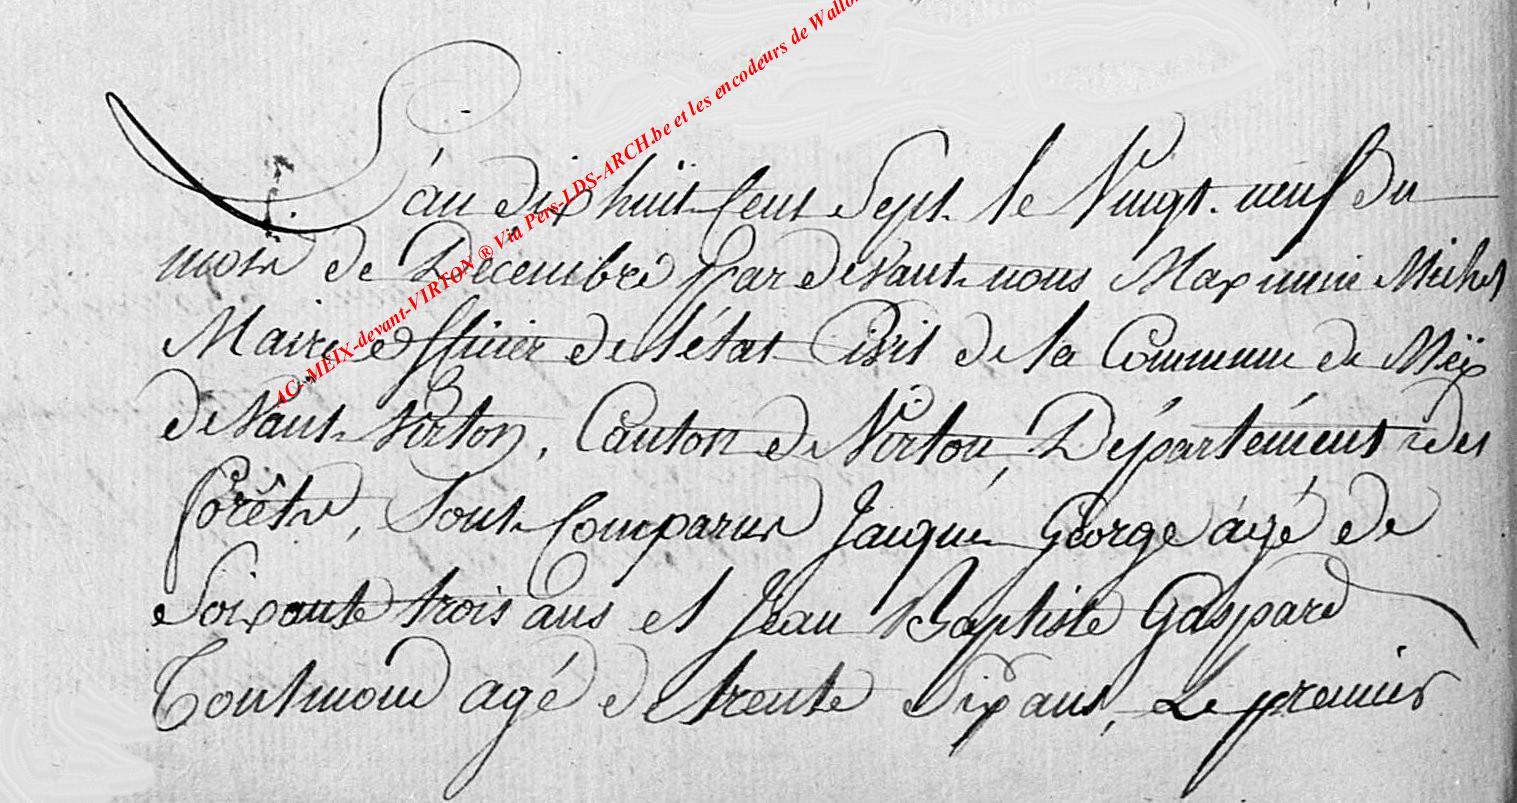 L'an dix huit Cent Sept le Vingt neuf du
mois de Décembre par devant nous Maximin Michel
Maire officier de l'état Civil de la Commune de Méix
devant Virton, Canton de Virton, Département des
forêts, Sont Comparus Jacques George agé de
Soixante trois ans et Jean Baptiste Gaspard
Toutmond agé de trente Six ans, Le premier
AC- MEIX-devant-VIRTON ® Via Pers-LDS-ARCH.be et les encodeurs de Wallo